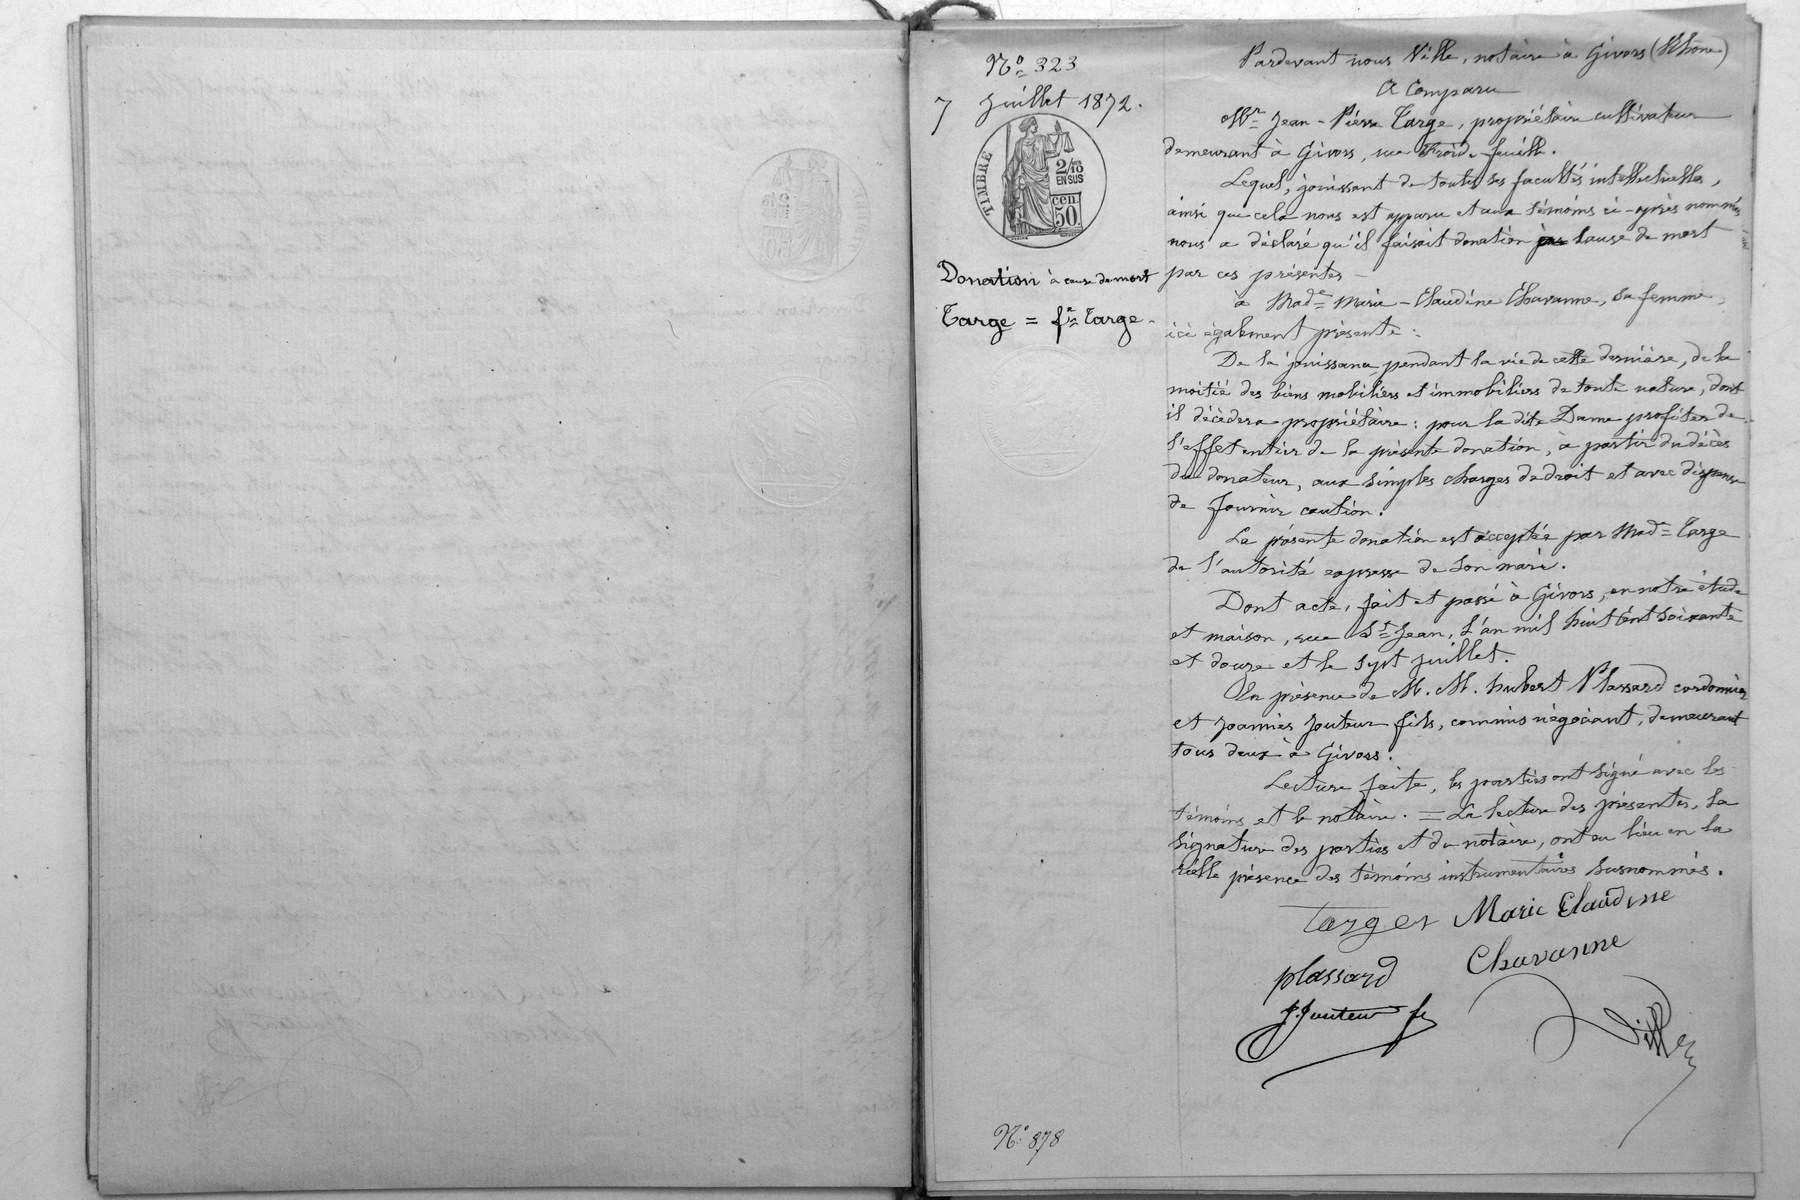 Nº 323
7 Juillet 1872.
TIMBRE
2/10
EN SUS
cen.
50.
Donation à cause de mort
Targe = fe Targe -
Pardevant nous Ville, notaire à Givors (Rhône)
A Comparu
Mr Jean-Pierre Targe, propriétaire cultivateur
demeurant à Givors, rue Froide-feuille.
Lequel, jouissant de toutes ses facultés intellectuelles,
ainsi que cela nous est apparu et aux témoins ci-après nommés
nous a déclaré qu'il faisait donation cause de mort
par ces présentes -
à Made Marie-Claudine Chavanne, sa femme,
ici également présente :
De la jouissance, pendant la vie de cette dernière, de la
moitié des biens mobiliers et immobiliers de toute nature, dont
il décèdera propriétaire : pour la dite Dame profiter de
l'effet entier de la présente donation, à partir du décès
du donateur, aux simples charges de droit et avec dispense
de fournir caution.
La présente donation est acceptée par Made Targe
de l'autorité expresse de son mari.
Dont acte, fait et passé à Givors, en notre étude
et maison, rue St Jean, L'an mil huit cent soixante
et douze et le sept juillet.
En présence de M. M. hubert Plassard cordonnier
et Joannès Jouteur fils, commis négociant, demeurant
tous deux à Givors.
Lecture faite, les parties ont signé avec les
témoins et le notaire. = La lecture des présentes, la
signature des parties et du notaire, ont eu lieu en la
réelle présence des témoins instrumentaires susnommés.
Targe Marie Claudine
Chavanne
plassard
J. Jouteur fs
Ville
Nº 878